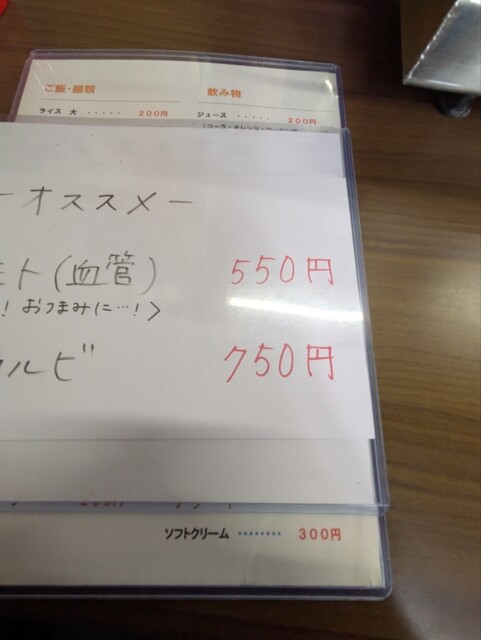 ご飯・麺類
飲み物
ライス 大 ・・・・・ 200円
ジュース ・・・・・ 200円
ーオススメー
モト(血管) 550円
! おつまみに…!〉
ルビ 750円
ソフトクリーム ・・・・・・・・ 300円